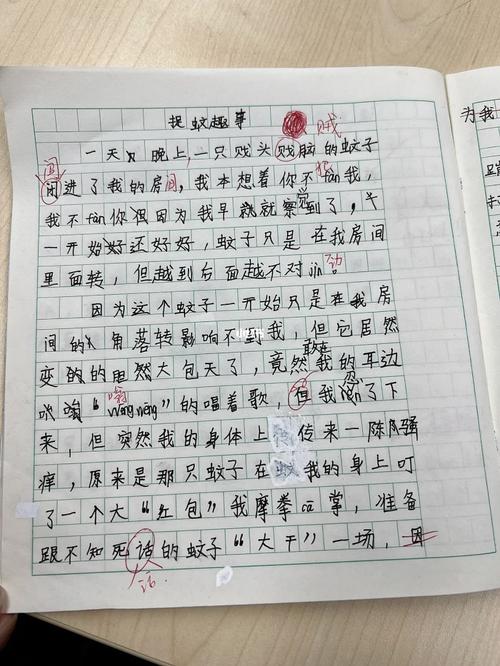 捉蚊趣事
贼
一天晚上，一只贱头贱脑的蚊子
闯
闭进了我的房间，我本想着你不fán我，
犯
我不fàn你但因为我早就察到了，
一开始还好好，蚊子只是在我房间
里面转，但越到后面越不对jìn。
劲
因为这个蚊子一开始只是在我房
间的角落转影响不到我，但它居然
变的的胆然大包天了，竟然敢在我的耳边
嗡
"wēng wēng"的唱着歌，但我rěn了下
忍
来，但突然我的身体上传来一陈风骚
痒，原来是那只蚊子在我的身上叮
了一个大"红包"我摩拳cā掌，准备
跟不知死话的蚊子"大干"一场，因
活
为我